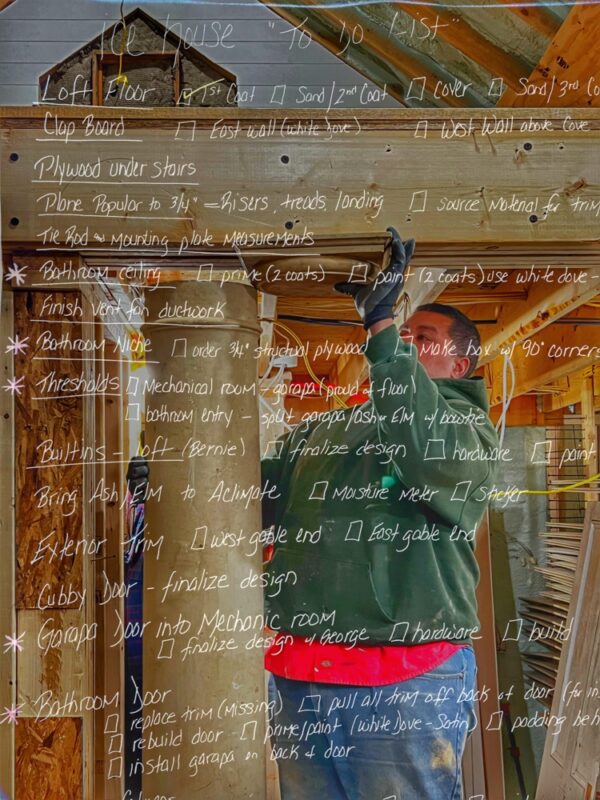 ice house "To Do List"
Loft Floor ☑ 1st Coat ☐ Sand/2nd Coat ☐ Cover ☐ Sand/3rd Co
Clap Board ☐ East wall (white dove) ☐ West Wall above Cove
Plywood under stairs
Plane Popular to 3/4" = Risers, treads, landing ☐ source material for trim
Tie Rod Mounting plate Measurements
* Bathroom ceiling ☐ prime (2 coats) ☐ paint (2 coats) use white dove -
Finish vent fan ductwork
* Bathroom Niche ☐ order 3/4" structual plywood ☐ Make box w/ 90° corners
* Thresholds ☐ Mechanical room - garapa (proud of floor)
☐ bathroom entry - split garapa/ash or Elm w/ bowtie
Builtins - Loft (Bernie) ☐ finalize design ☐ hardware ☐ paint
Bring Ash/Elm to Aclimate ☐ Moisture Meter ☐ Sticker
Exterior Trim ☐ West gable end ☐ East gable end
Cubby Door - finalize design
* Garapa Door into Mechanic room
☐ finalize design w/ George ☐ hardware ☐ build
* Bathroom Door
☐ replace trim (missing) ☐ pull all trim off back of door
☐ rebuild door - ☐ prime/paint (White Dove - Satin) ☐ padding beh
☐ install garapa on back of door